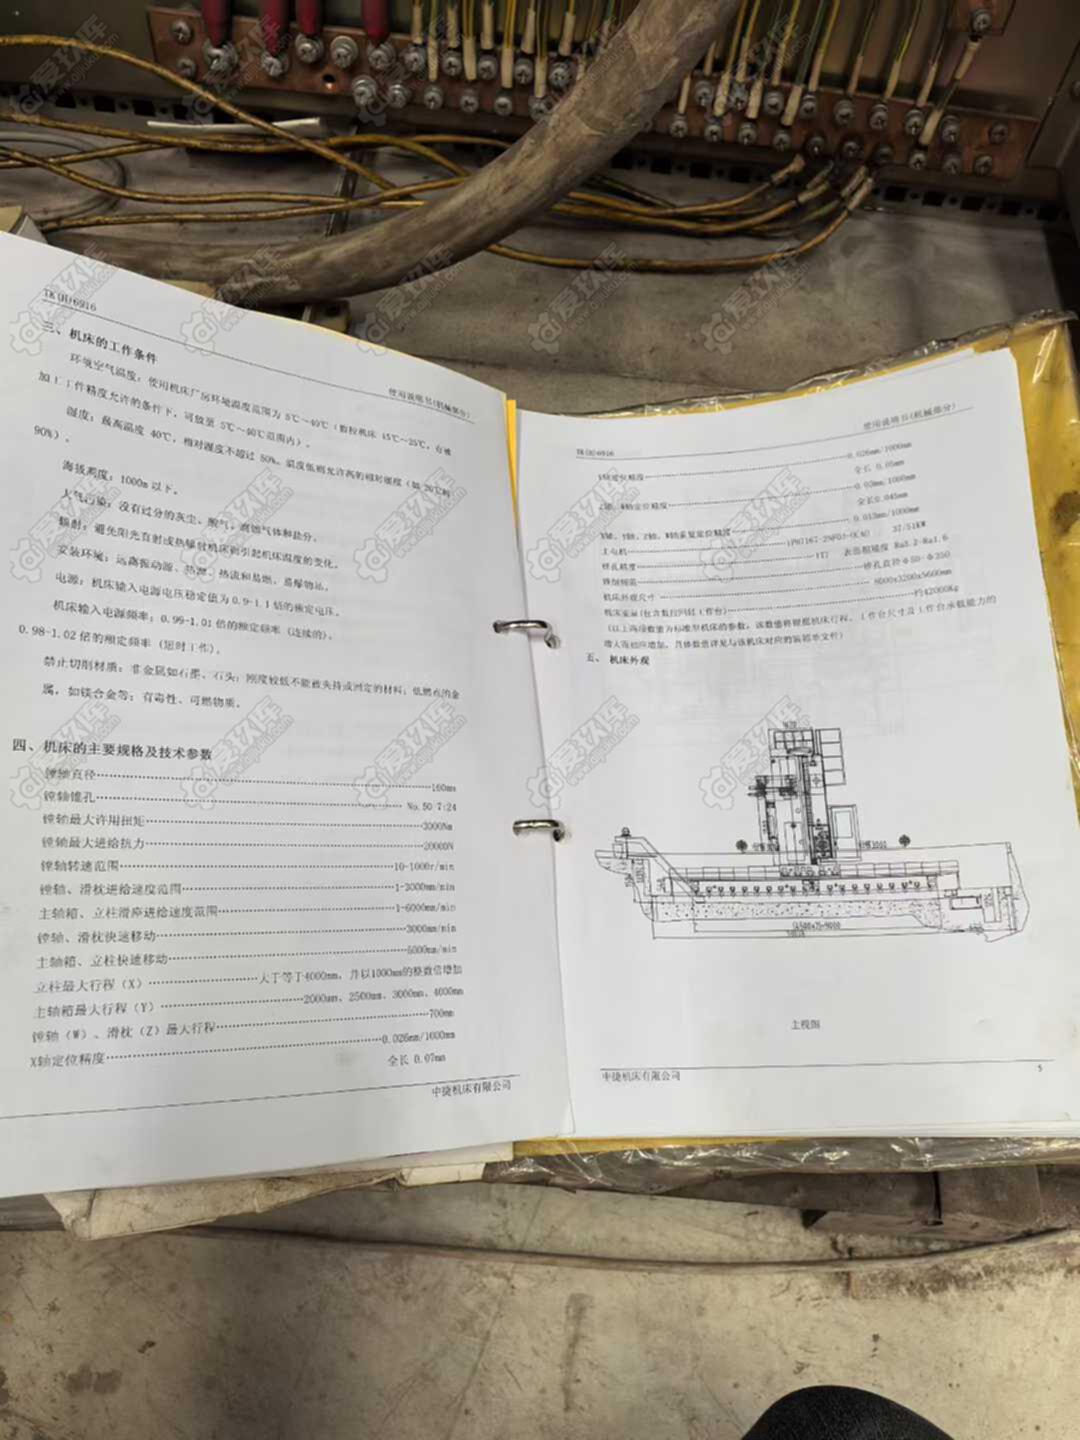 TK(H)6916
使用说明书(机械部分)
三、机床的工作条件
环境空气温度：使用机床厂房环境温度范围为 5℃～40℃（数控机床 15℃～25℃，在被
加工工件精度允许的条件下，可放至 5℃～40℃范围内）。
湿度：最高温度 40℃，相对湿度不超过 50%，温度低则允许高的相对湿度（如 20℃时
90%）。
海拔高度：1000m 以下。
大气污染：没有过分的灰尘、酸气、腐蚀气体和盐分。
辐射：避免阳光直射或热辐射机床而引起机床温度的变化。
安装环境：远离振动源、热源、热流和易燃、易爆物品。
电源：机床输入电源电压稳定值为 0.9-1.1 倍的额定电压。
机床输入电源频率：0.99-1.01 倍的额定频率（连续的）。
0.98-1.02 倍的额定频率（短时工作）。
禁止切削材质：非金属如石墨、石头；刚度较低不能被夹持或固定的材料；低燃点的金
属，如镁合金等；有毒性、可燃物质。
四、机床的主要规格及技术参数
镗轴直径……160mm
镗轴锥孔……No.50 7:24
镗轴最大许用扭矩……3000Nm
镗轴最大进给抗力……20000N
镗轴转速范围……10-1000r/min
镗轴、滑枕进给速度范围……1-3000mm/min
主轴箱、立柱滑座进给速度范围……1-6000mm/min
镗轴、滑枕快速移动……3000mm/min
主轴箱、立柱快速移动……6000mm/min
立柱最大行程（X）……大于等于4000mm，并以1000mm的整数倍增加
主轴箱最大行程（Y）……2000mm、2500mm、3000mm、4000mm
镗轴（W）、滑枕（Z）最大行程……700mm
X轴定位精度……0.026mm/1000mm
全长 0.07mm
中捷机床有限公司
TK(H)6916
使用说明书(机械部分)
Y轴定位精度……0.026mm/1000mm
全长 0.05mm
Z轴、W轴定位精度……0.03mm/1000mm
全长0.045mm
X轴、Y轴、Z轴、W轴重复定位精度……0.013mm/1000mm
主电机…… 37/51KW
镗孔精度……IT7 表面粗糙度 Ra3.2-Ra1.6
……镗孔直径φ50-φ250
机床外观尺寸……8000x3200x5600mm
机床重量(包含数控回转工作台)……约42000Kg
(以上两项数值为标准型机床的参数，该数值将根据机床行程、工作台尺寸及工作台承载能力的
增大而相应增加，具体数值详见与该机床对应的装箱单文件)
五、机床外观
主视图
中捷机床有限公司
5
爱玖库
www.aijiuku.com